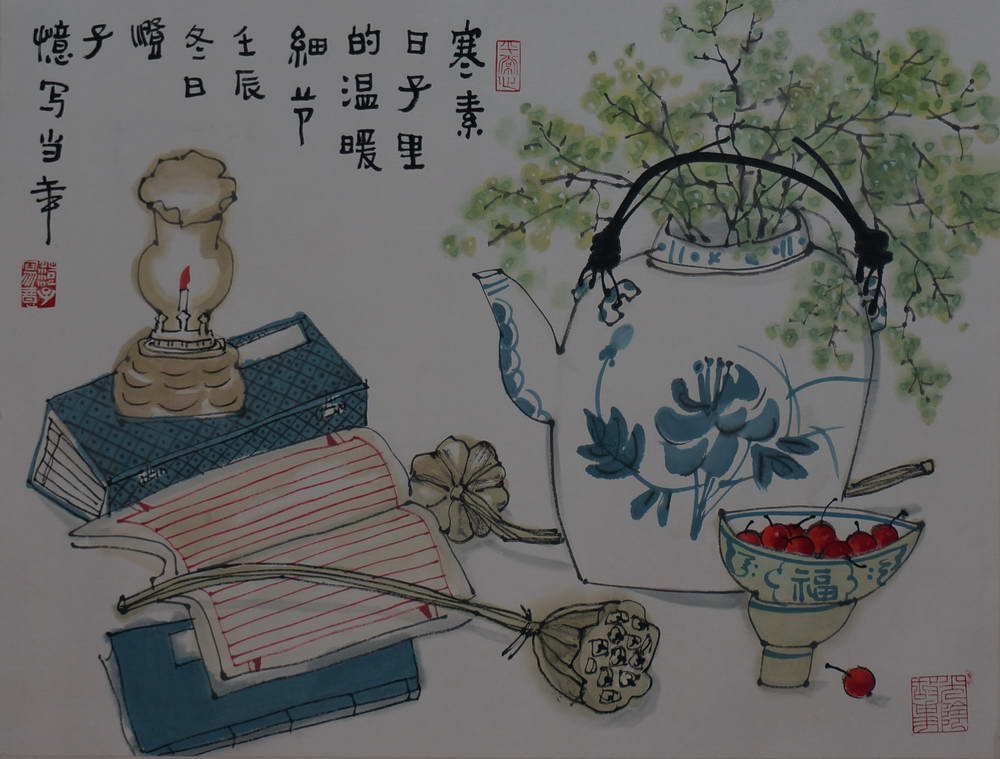 寒素
日子里
的温暖
細节
壬辰
冬日
子
憶写当年
福